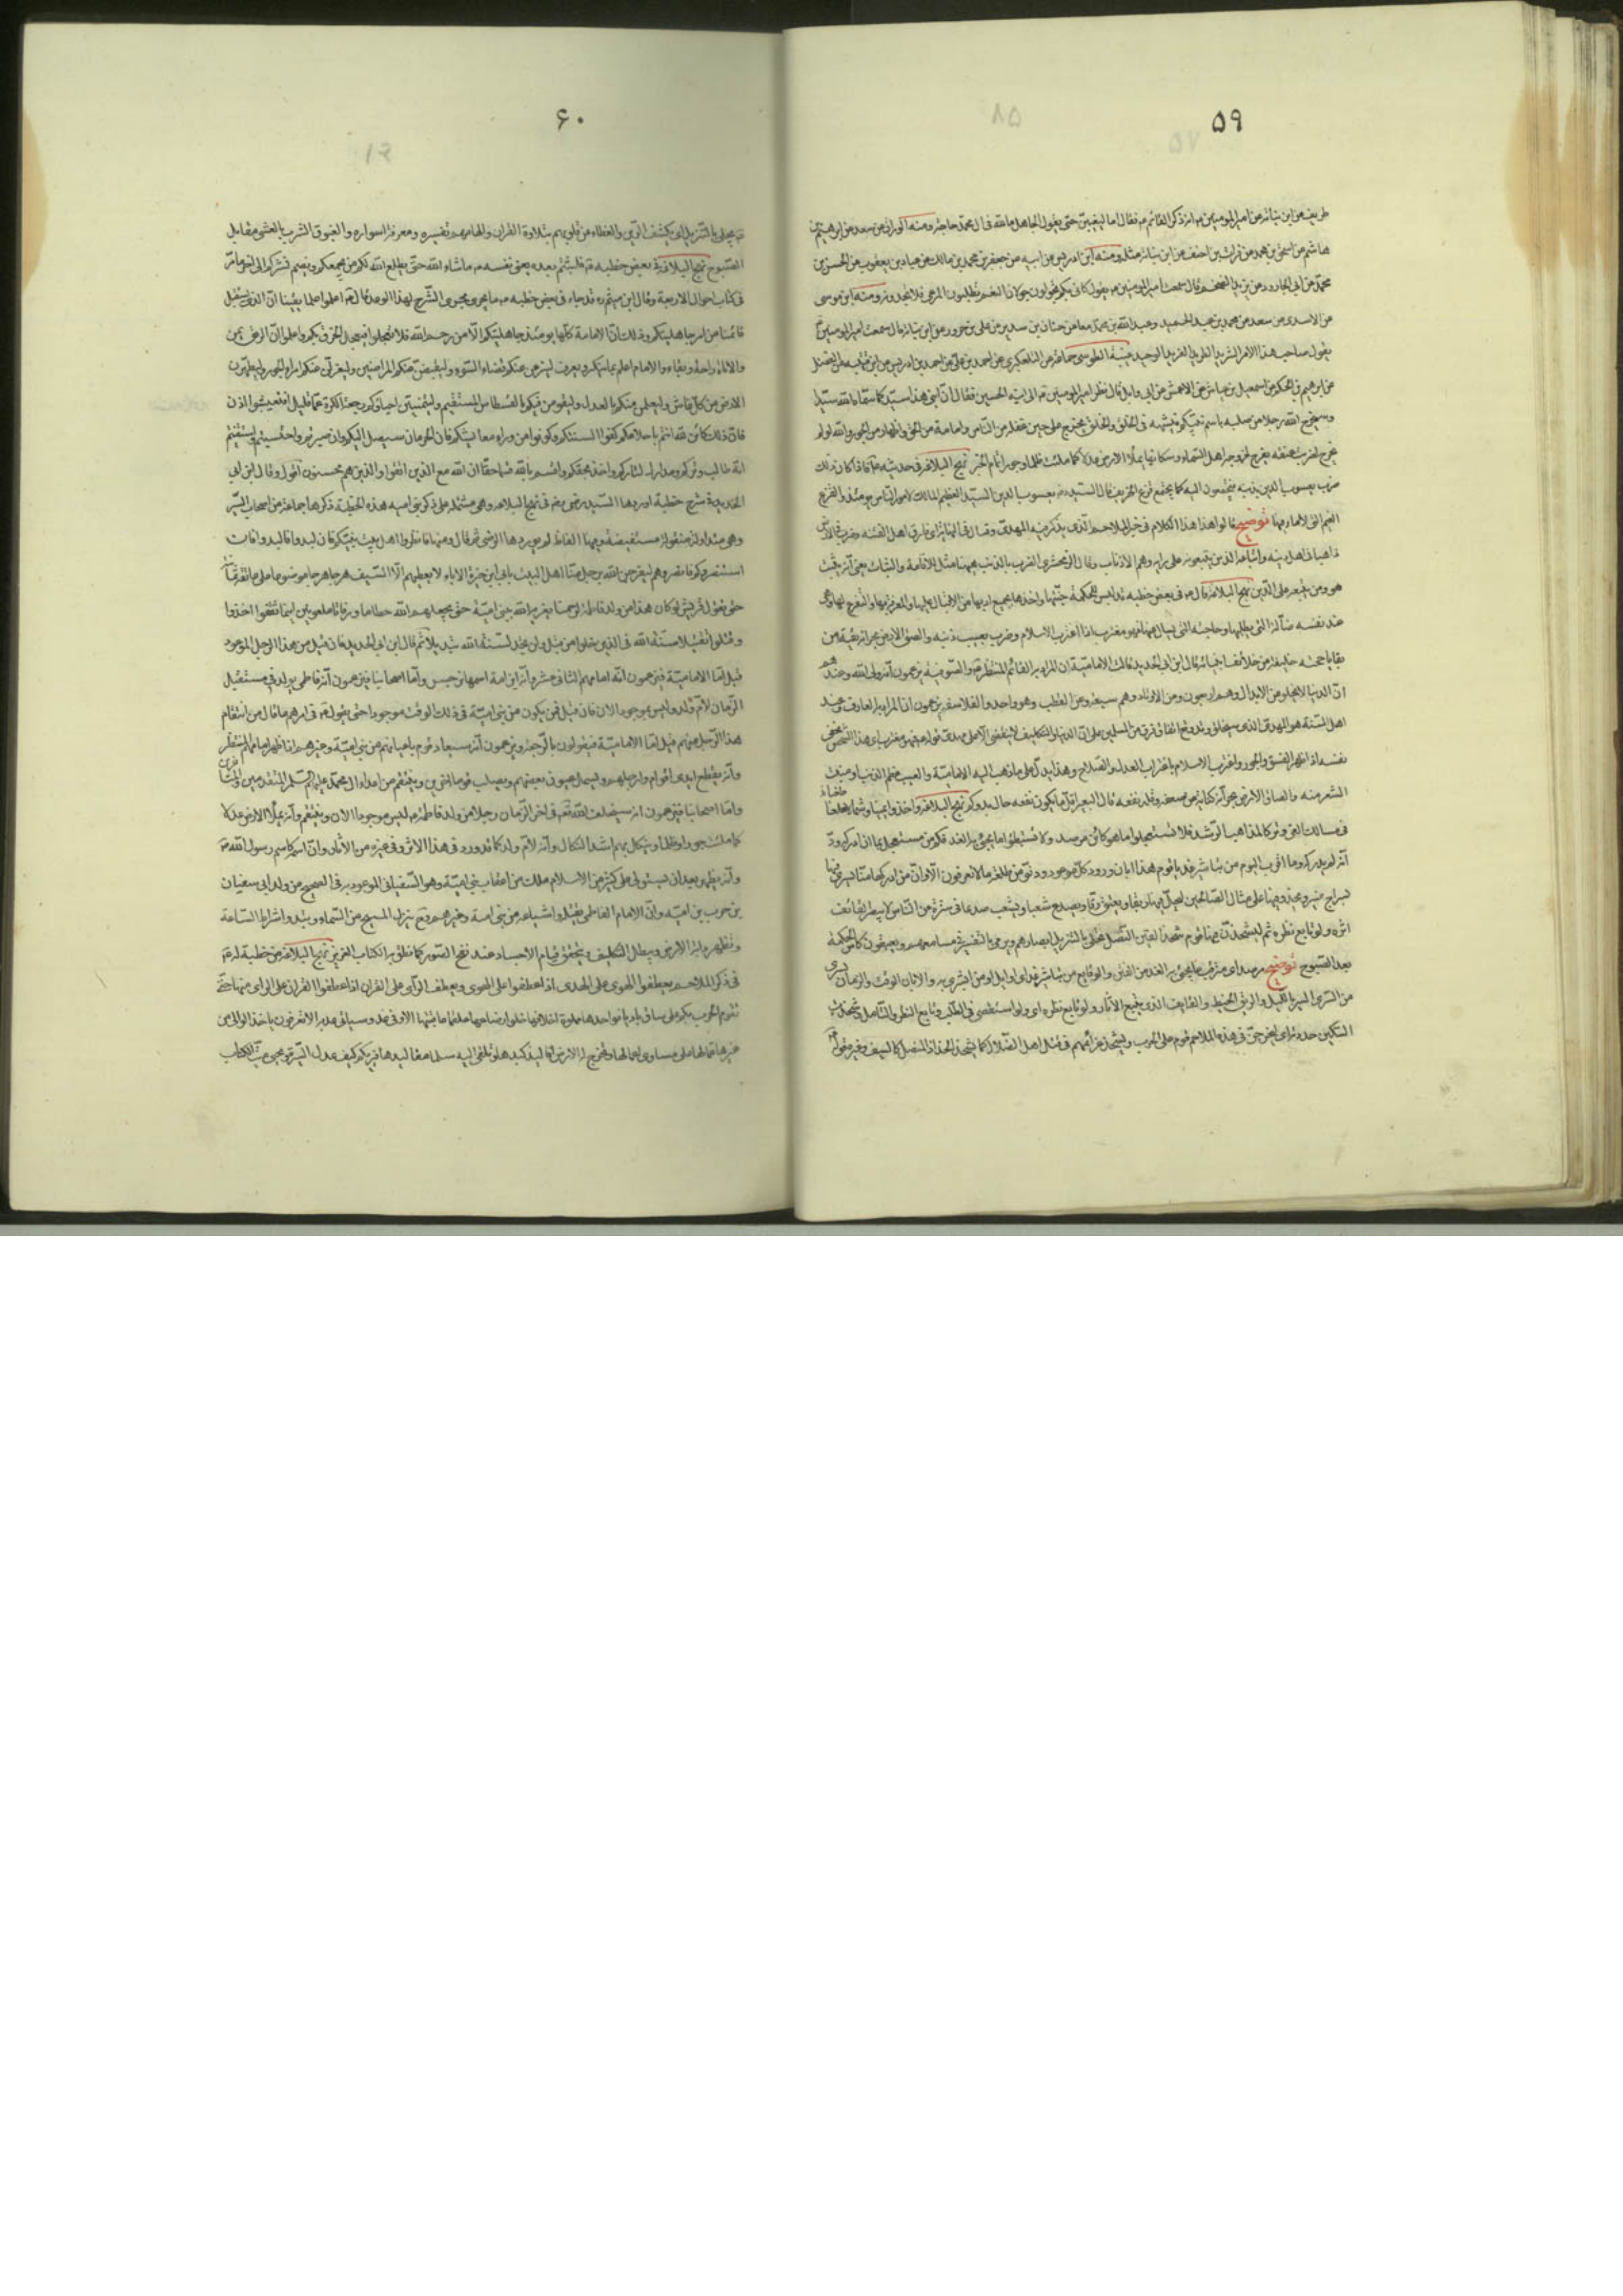 ٥٩
طريف عن ابن نباته عن امير المومنين ع انه ذكر القائم ع فقال اما ليغيبن حتى يقول الجاهل ما لله فى ال محمد حاجة ومنه
هاشم عن اسحق بن محمد عن احنف عن ابن نباته مثله ومنه ابن ادريس عن ابيه عن جعفر بن محمد بن مالك عن عباد بن يعقوب عن الحسن بن
محمد عن ابى الجارود عن يزيد الضخم قال سمعت امير المومنين ع يقول كانى بكم تجولون جولان النعم تطلبون المرعى فلا تجدونه ومنه ابن موسى
عن الاسدى عن سعد عن محمد بن عبد الحميد وعبد الله بن محمد معا عن حنان بن سدير عن على بن حزور عن ابن نباته قال سمعت امير المومنين ع
يقول صاحب هذا الامر الشريد الطريد الفريد الوحيد غيبة الطوسى جماعة عن التلعكبرى عن احمد بن على عن احمد بن ادريس عن ابن قتيبه عن الفضل
عن ابرهيم بن الحكم عن اسمعيل بن عياش عن الاعمش عن ابى وايل قال نظر امير المومنين ع الى ابنه الحسين فقال ان ابنى هذا سيد كما سماه الله سيدا
وسيخرج الله رجلا من صلبه باسم نبيكم فيشبهه فى الخلق والخلق يخرج على حين غفلة من الناس واماتة من الحق واظهار من الجور والله لو لم
يخرج لضرب عنقه يفرح لخروجه اهل السماء وسكانها يملأ الارض عدلا كما ملئت ظلما وجورا تمام الخبر نهج البلاغة فى حديثه ع فاذا كان ذلك
ضرب يعسوب الدين بذنبه فيجتمعون اليه كما يجتمع قزع الخريف قال السيد يعسوب الدين السيد العظيم المالك لامور الناس يومئذ والقزع
الغيم التى لا ماء فيها توضيح قالوا هذا الكلام فى خبر الملاحم الذى يذكر فيه المهدى وقال فى النهاية اى فارق اهل الفتنه وضرب فى الارض
ذاهبا فى اهل دينه واتباعه الذين يتبعونه على رايه وهم الاذناب وقال الزمخشرى الضرب بالذنب ههنا مثل للاقامة والثبات يعنى انه يثبت
هو ومن يتبعه على الدين نهج البلاغة قال ع فى بعض خطبه قد لبس للحكمة جنتها واخذها بجميع ادبها من الاقبال عليها والمعرفة بها والتفرغ لها وهى
عند نفسه ضالته التى يطلبها وحاجته التى يسال عنها فهو مغترب اذا اغترب الاسلام وضرب بعسيب ذنبه والصق الارض بجرانه بقية من
بقايا حجته خليفة من خلائف انبيائه قال ابن ابى الحديد قالت الامامية ان المراد به القائم المنتظر ع والصوفية يزعمون انه ولى الله وعندهم
ان الدنيا لا يخلو من الابدال وهم اربعون ومن الاوتاد وهم سبعة ومن القطب وهو واحد والفلاسفة يزعمون ان المراد به العارف وعند
اهل السنة هو المهدى الذى سيخلق وقد وقع اتفاق فرق من المسلمين على ان الدنيا والتكليف لا ينقضى الا على المهدى قوله ع فهو مغترب اى هذا الشخص يخفى
نفسه اذا ظهر الفسق والجور واغترب الاسلام باغتراب العدل والصلاح وهذا يدل على ما ذهب اليه الامامية والعسيب عظم الذنب او منبت
الشعر منه والصاق الارض بجرانه كناية عن ضعفه وقلة نفعه فان البعير اقل ما يكون نفعه حال بروكه نهج البلاغة واخذوا يمينا وشمالا طعنا
فى مسالك الغى وتركا لمذاهب الرشد فلا تستعجلوا ما هو كائن مرصد ولا تستبطئوا ما يجئ به الغد فكم من مستعجل بما ان ادركه ود
انه لم يدركه وما اقرب اليوم من تباشير غد يا قوم هذا ابان ورود كل موعود ودنو من طلعة ما لا تعرفون الا وان من ادركها منا يسرى فيها
بسراج منير ويحذو فيها على مثال الصالحين ليحل فيها ربقا ويعتق رقا ويصدع شعبا ويشعب صدعا فى سترة عن الناس لا يبصر القائف
اثره ولو تابع نظره ثم ليشحذن فيها قوم شحذ القين النصل تجلى بالتنزيل ابصارهم ويرمى بالتفسير فى مسامعهم ويغبقون كاس الحكمة
بعد الصبوح توضيح مرصد اى مترقب ما يجئ به الغد من الفتن والوقايع من تباشير غد اى اوايله ومن البشرى به والابان الوقت والزمان يسرى
من السرى السير بالليل والربق الخيط والقايف الذى يتتبع الآثار ولو تابع نظره اى ولو استقصى فى الطلب وتابع النظر والتامل وشحذت
السكين حددته اى ليحرضن فى هذه الملاحم قوم على الحرب ويشحذ عزائمهم فى قتل اهل الضلال كما يشحذ الحداد النصل كالسيف وغيره قوله
٦٠
ع يجلى بالتنزيل اى يكشف الرين والغطاء عن قلوبهم بتلاوة القران والهامهم تفسيره ومعرفة اسراره والغبوق الشرب بالعشى مقابل
الصبوح نهج البلاغة فى بعض خطبه ع فلبثتم بعده يعنى نفسه ع ما شاء الله حتى يطلع الله لكم من يجمعكم ويضم نشركم الى اخر ما مر
فى كتاب احوال الاربعة وقال ابن ميثم ره قد جاء فى بعض خطبه ع ما يجرى مجرى الشرح لهذا الوعد قال ع اعلموا علما يقينا ان الذى يستقبل
قائمنا من امر جاهليتكم وذلك ان الامة كلها يومئذ جاهلية الا من رحم الله فلا تعجلوا فيعجل الخرق بكم واعلموا ان الرفق يمن
والاناة راحة وبقاء والامام اعلم بما ينكر ويعرف لينزعن عنكم قضاة السوء وليقبضن عنكم المراضين وليعزلن عنكم امراء الجور وليطهرن
الارض من كل غاش وليعملن فيكم بالعدل وليقومن فيكم بالقسطاس المستقيم وليتمنين احياؤكم رجعة الكرة عما قليل فتعيشوا اذن
فان ذلك كائن لله انتم باحلامكم كفوا السنتكم وكونوا من وراء معايشكم فان الحرمان سيصل اليكم وان صبرتم واحتسبتم واستيقنتم
انه طالب وتركم ومدرك لثاركم واخذ بحقكم واقسم بالله قسما حقا ان الله مع الذين اتقوا والذين هم محسنون اقول وقال ابن ابى
الحديد فى شرح خطبة اوردها السيد رضى رض فى نهج البلاغه وهى مشتمله على ذكر بنى اميه هذه الخطبة ذكرها جماعة من اصحاب السير
وهى متداولة منقولة مستفيضه وفيها الفاظ لم يوردها الرضى ثم قال ومنها فانظروا اهل بيت نبيكم فان لبدوا فالبدوا فان
استنصروكم فانصروهم ليفرجن الله برجل منا اهل البيت بابى ابن خيرة الاماء لا يعطيهم الا السيف هرجا هرجا موضوعا على عاتقه ثمانية
حتى تقول قريش لو كان هذا من ولد فاطمة لرحمنا يغريه الله ببنى امية حتى يجعلهم الله حطاما ورفاتا ملعونين اينما ثقفوا اخذوا
وقتلوا تقتيلا سنة الله فى الذين خلوا من قبل ولن تجد لسنة الله تبديلا ثم قال ابن ابى الحديد فان قيل من هذا الرجل الموعود
قيل اما الامامية فيزعمون انه امامهم الثانى عشر وانه ابن امة اسمها نرجس واما اصحابنا فيزعمون انه فاطمى يولد فى مستقبل
الزمان لام ولد وليس بموجود الان فان قيل فمن يكون من بنى امية فى ذلك الوقت موجودا حتى يقول ع فى امرهم ما قال من انتقام
هذا الرجل منهم قيل اما الامامية فيقولون بالرجعة ويزعمون انه سيعاد قوم باعيانهم من بنى امية وغيرهم اذا ظهر امامهم المنتظر
وانه يقطع ايدى اقوام وارجلهم ويسمل عيون بعضهم ويصلب قوما اخرين وينتقم من اعداء ال محمد عليهم السلم المتقدمين والمتاخرين
واما اصحابنا فيزعمون انه سيخلق الله تعه فى اخر الزمان رجلا من ولد فاطمة ع ليس موجودا الان وينتقم وانه يملأ الارض عدلا
كما ملئت جورا وظلما وينكل بهم اشد النكال وانه لام ولد كما قد ورد فى هذا الاثر وفى غيره من الآثار وان اسمه كاسم رسول الله ص
وانه يظهر بعد ان يستولى على كثير من الاسلام ملك من اعقاب بنى امية وهو السفيانى الموعود به فى الصحيح من ولد ابى سفيان
بن حرب بن اميه وان الامام الفاطمى يقتله واشياعه من بنى اميه وغيرهم وح ينزل المسيح من السماء ويبدوا اشراط الساعة
وتظهر دابة الارض ويبطل التكليف ويتحقق قيام الاجساد عند نفخ الصور كما نطق به الكتاب العزيز نهج البلاغة من خطبة له ع
فى ذكر الملاحم يعطف الهوى على الهدى اذا عطفوا الهدى على الهوى ويعطف الرآى على القران اذا عطفوا القران على الراى منها حتى
تقوم الحرب بكم على ساق باديا نواجدها مملوة اخلافها حلوا رضاعها علقما عاقبتها الا وفى غد وسياتى غد بما لا تعرفون ياخذ الوالى من
غيرها عمالها على مساوى اعمالها وتخرج له الارض افاليذ كبدها وتلقى اليه سلما مقاليدها فيريكم كيف عدل السيرة ويحيى ميت الكتاب